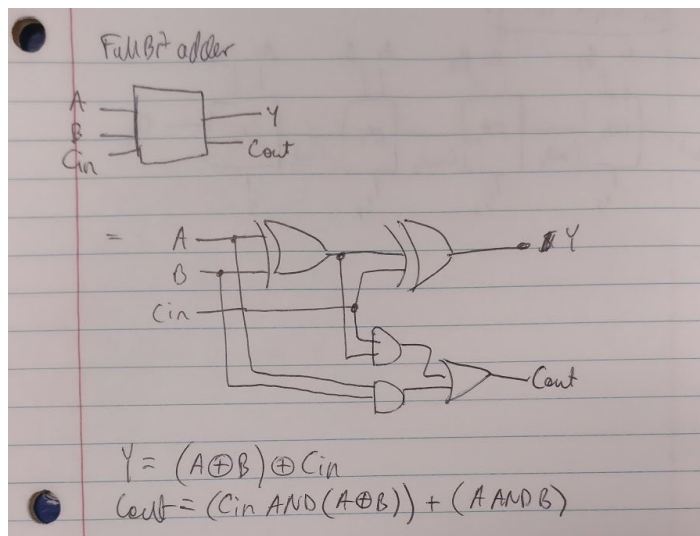 Full Bit adder
A
B
Cin
Y
Cout
= A
B
Cin
Y
Cout
Y = (A⊕B)⊕Cin
Cout = (Cin AND (A⊕B)) + (A AND B)